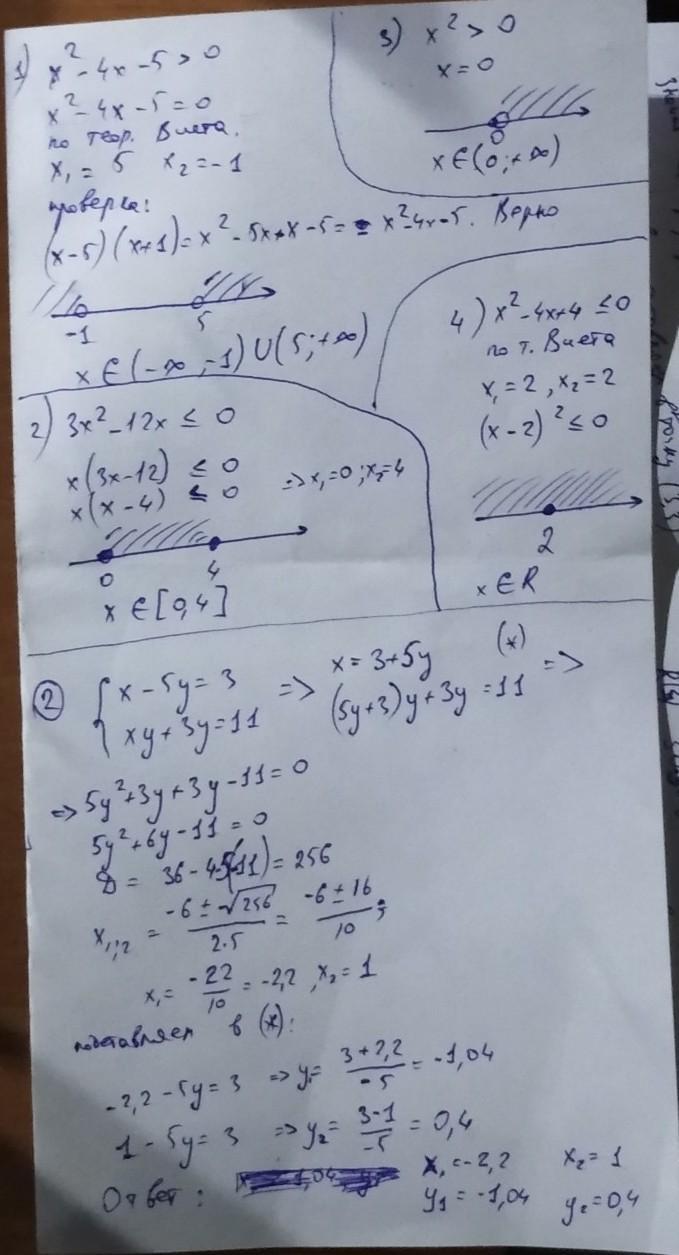 1) x² - 4x - 5 > 0
x² - 4x - 5 = 0
по теор. Виета.
x₁ = 5 x₂ = -1
проверка:
(x-5)(x+1) = x² - 5x + x - 5 = x² - 4x - 5. Верно
-1 5
x ∈ (-∞, -1) ∪ (5; +∞)
2) 3x² - 12x ≤ 0
x(3x-12) ≤ 0
x(x-4) ≤ 0 => x₁=0; x₂=4
0 4
x ∈ [0,4]
3) x² > 0
x = 0
0
x ∈ (0; +∞)
4) x² - 4x + 4 ≤ 0
по т. Виета
x₁ = 2, x₂ = 2
(x-2)² ≤ 0
2
x ∈ R
② { x - 5y = 3 => x = 3 + 5y (*)
xy + 3y = 11 (5y+3)y + 3y = 11 =>
=> 5y² + 3y + 3y - 11 = 0
5y² + 6y - 11 = 0
D = 36 - 4·5(-11) = 256
x₁;₂ = (-6 ± √256)/(2·5) = (-6 ± 16)/10;
x₁ = -22/10 = -2,2, x₂ = 1
подставляем в (*):
-2,2 - 5y = 3 => y₁ = (3 + 2,2)/(-5) = -1,04
1 - 5y = 3 => y₂ = (3-1)/(-5) = 0,4
Ответ: x₁ = -2,2 x₂ = 1
y₁ = -1,04 y₂ = 0,4